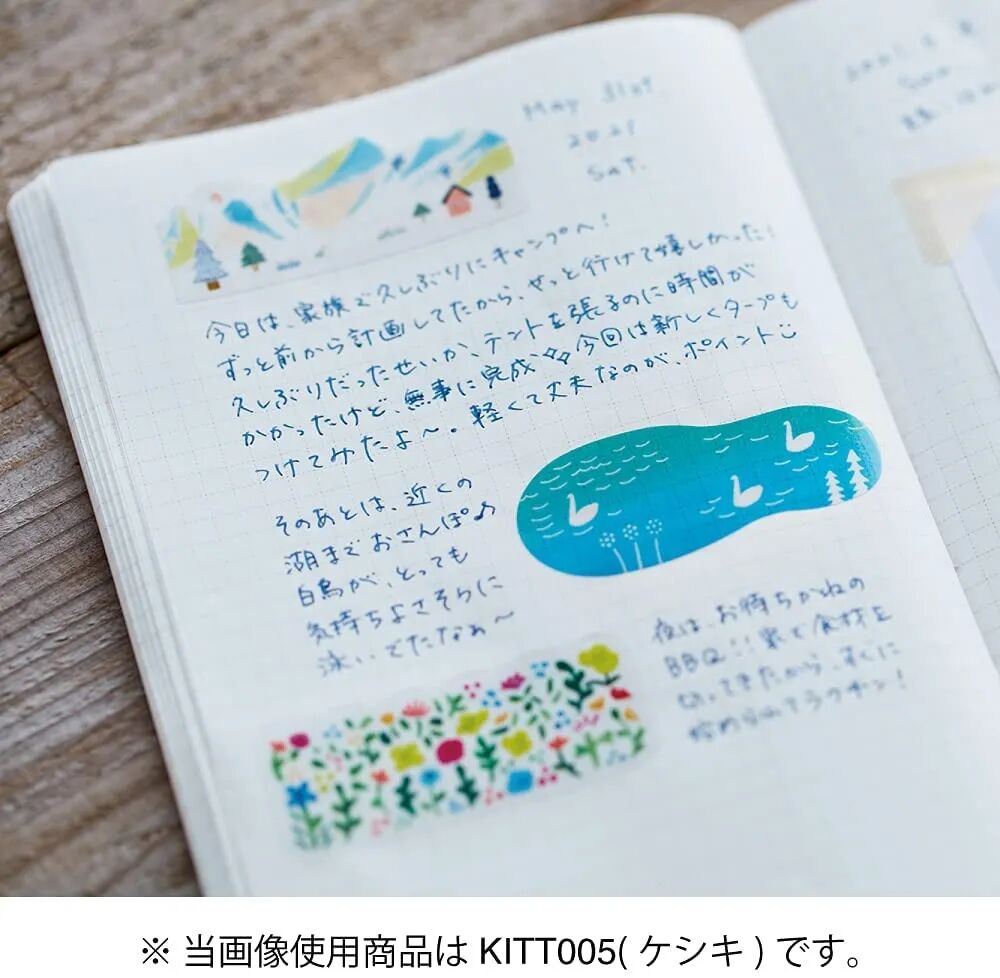 May 31st.
2021
Sat.
今日は、家族で久しぶりにキャンプへ!
ずっと前から計画してたから、やっと行けて嬉しかった!
久しぶりだったせいか、テントを張るのに時間が
かかったけど、無事に完成 今回は新しくタープも
つけてみたよ〜。軽くて丈夫なのが、ポイント
そのあとは、近くの
湖までおさんぽ♪
白鳥が、とっても
気持ちよさそうに
泳いでたなぁ〜
夜は、お待ちかねの
BBQ!! 家で食材を
切ってきたから、すぐに
始められてラクチン!
※ 当画像使用商品は KITT005( ケシキ ) です。